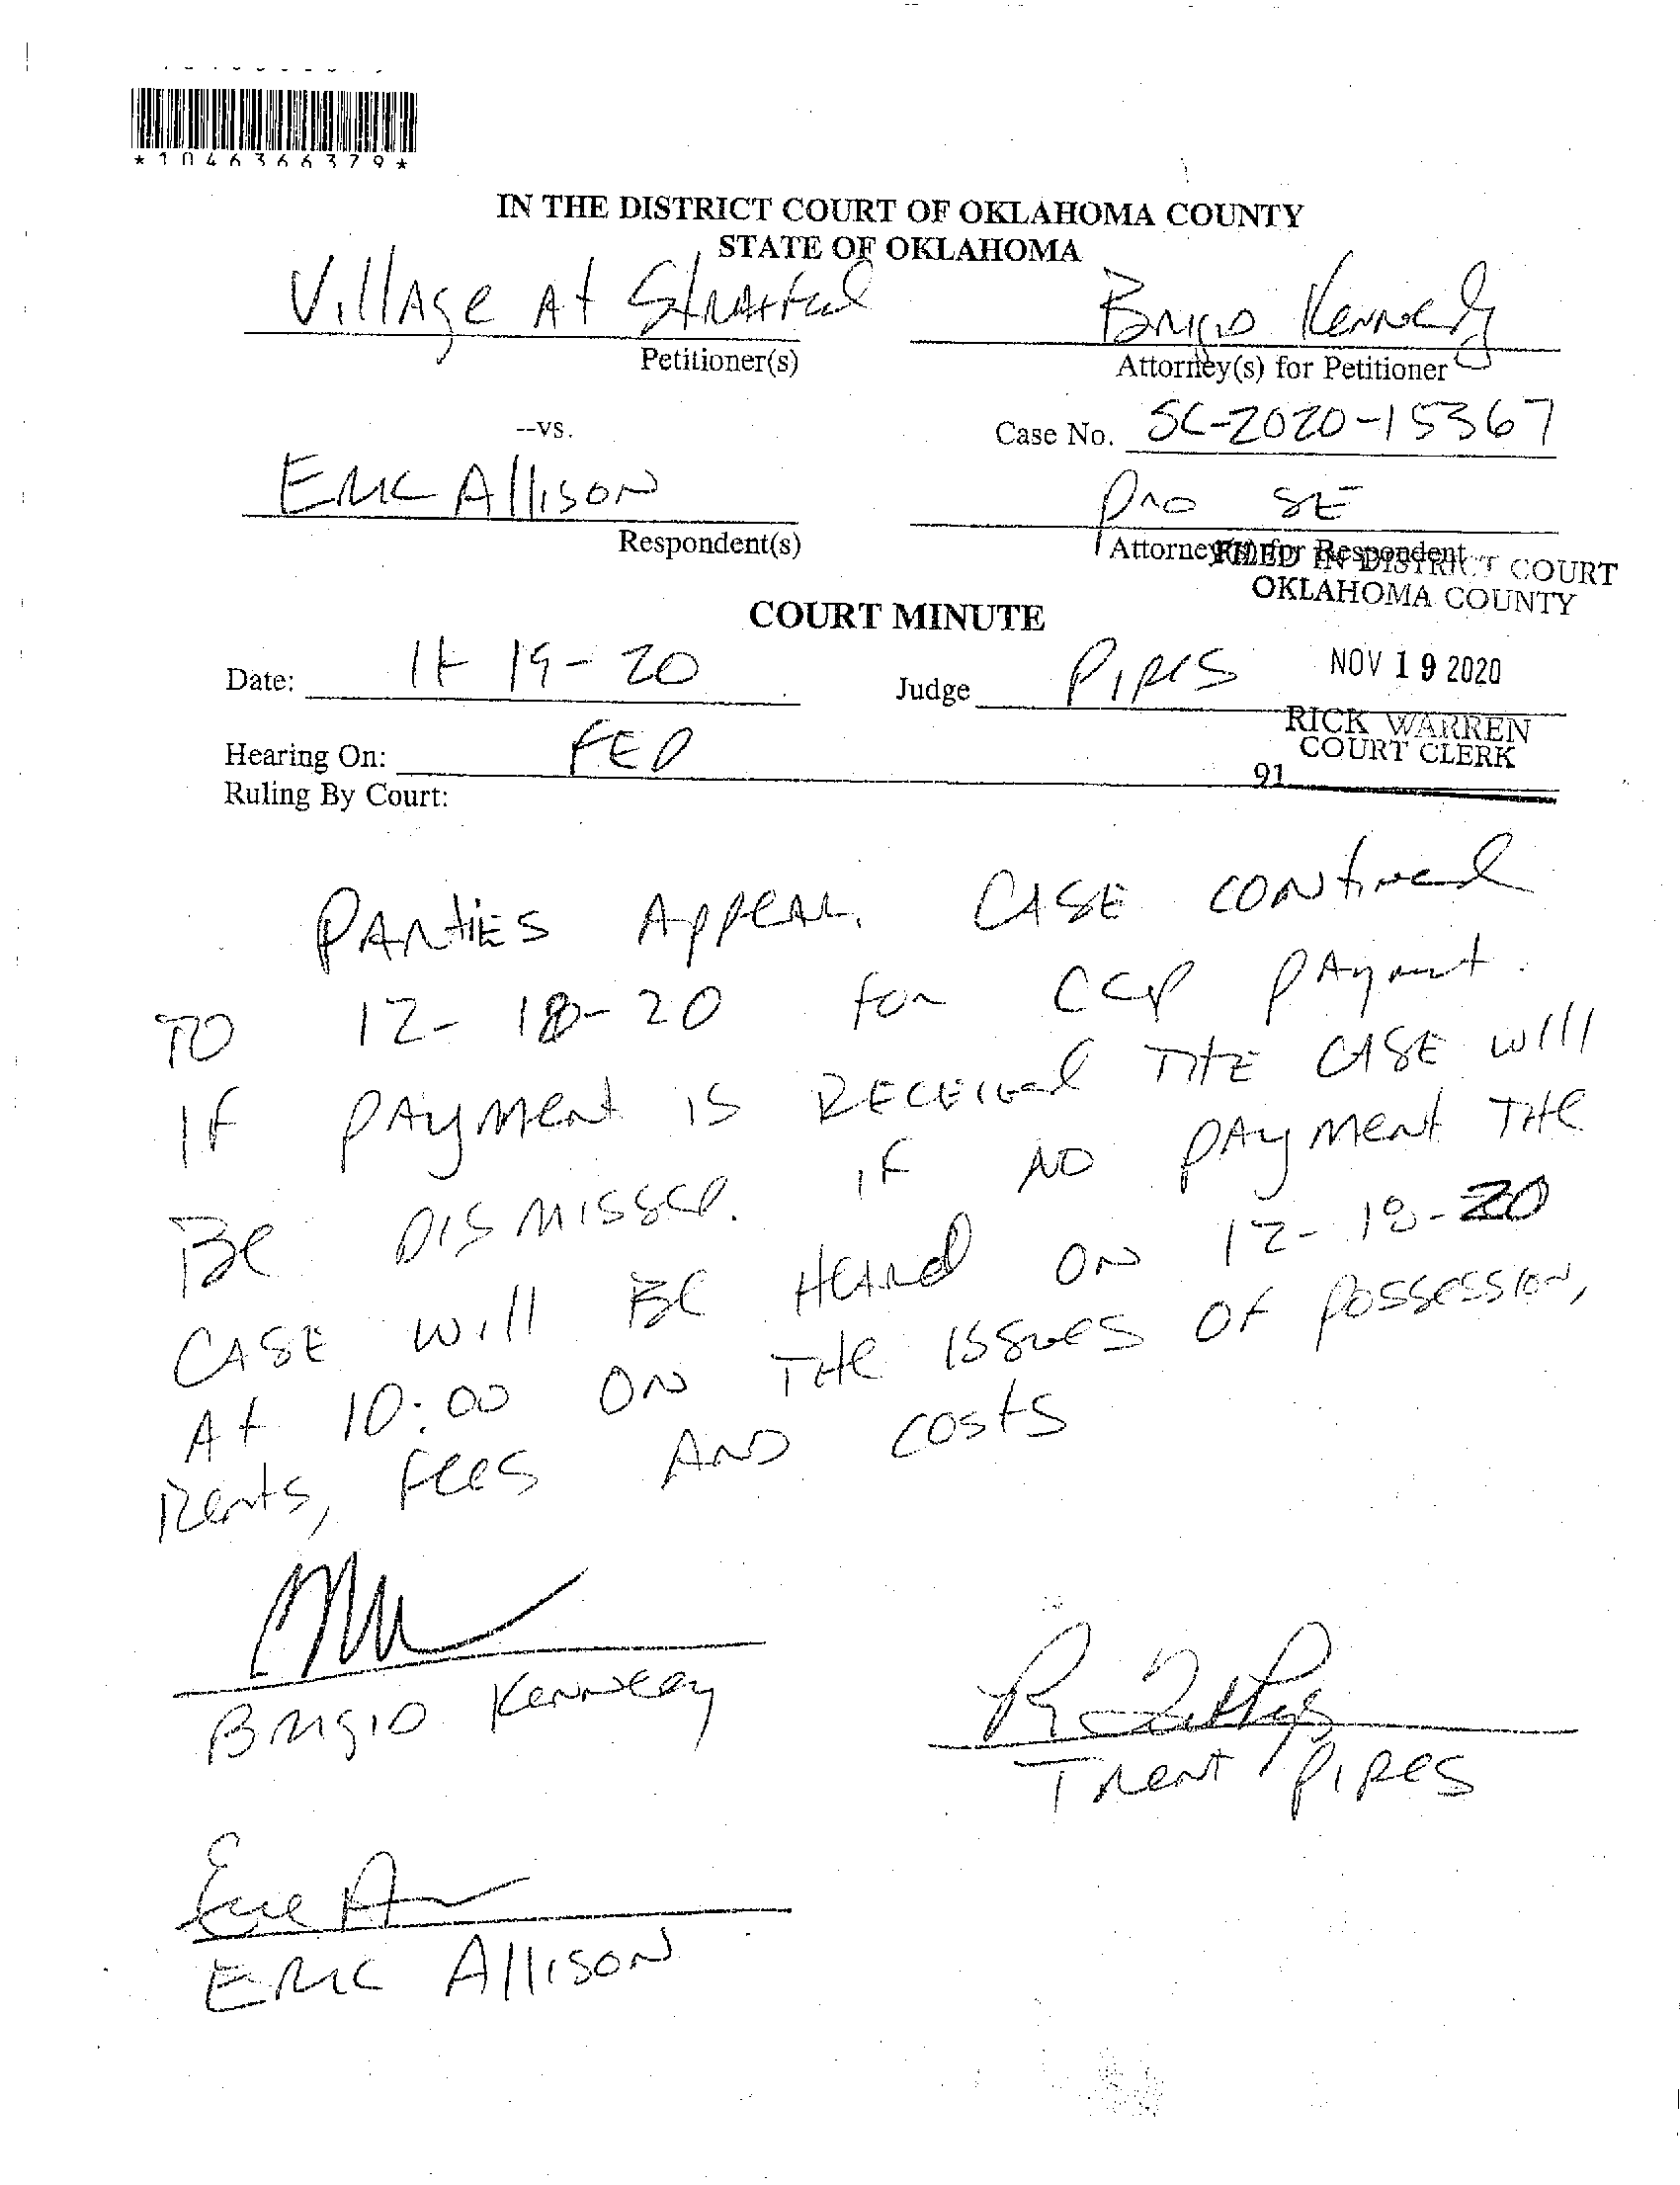 *1046366379*
IN THE DISTRICT COURT OF OKLAHOMA COUNTY
STATE OF OKLAHOMA
Village At Stratford Brigid Kennedy
Petitioner(s) Attorney(s) for Petitioner
--vs. Case No. SC-2020-15367
ERIC Allison Pro SE
Respondent(s) Attorney(s) for Respondent
FILED IN DISTRICT COURT
OKLAHOMA COUNTY
COURT MINUTE
Date: 11-19-20 Judge Pipes NOV 19 2020
RICK WARREN
COURT CLERK
Hearing On: FED 91
Ruling By Court:
PARTIES Appear. CASE continued
TO 12-18-20 for CCP payment.
IF payment is RECEIVED THE CASE will
Be DISMISSED. IF NO payment THE
CASE will BE HEARD ON 12-18-20
At 10:00 ON THE ISSUES OF POSSESSION,
Rents, fees AND costs
Brigid Kennedy
Trent Pipes
ERIC Allison